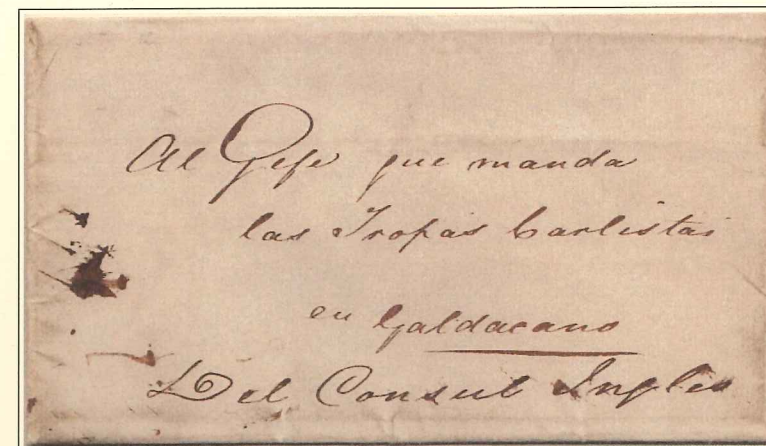 Al Gefe que manda
las Tropas Carlistas
en Galdacano
Del Consul Ingles